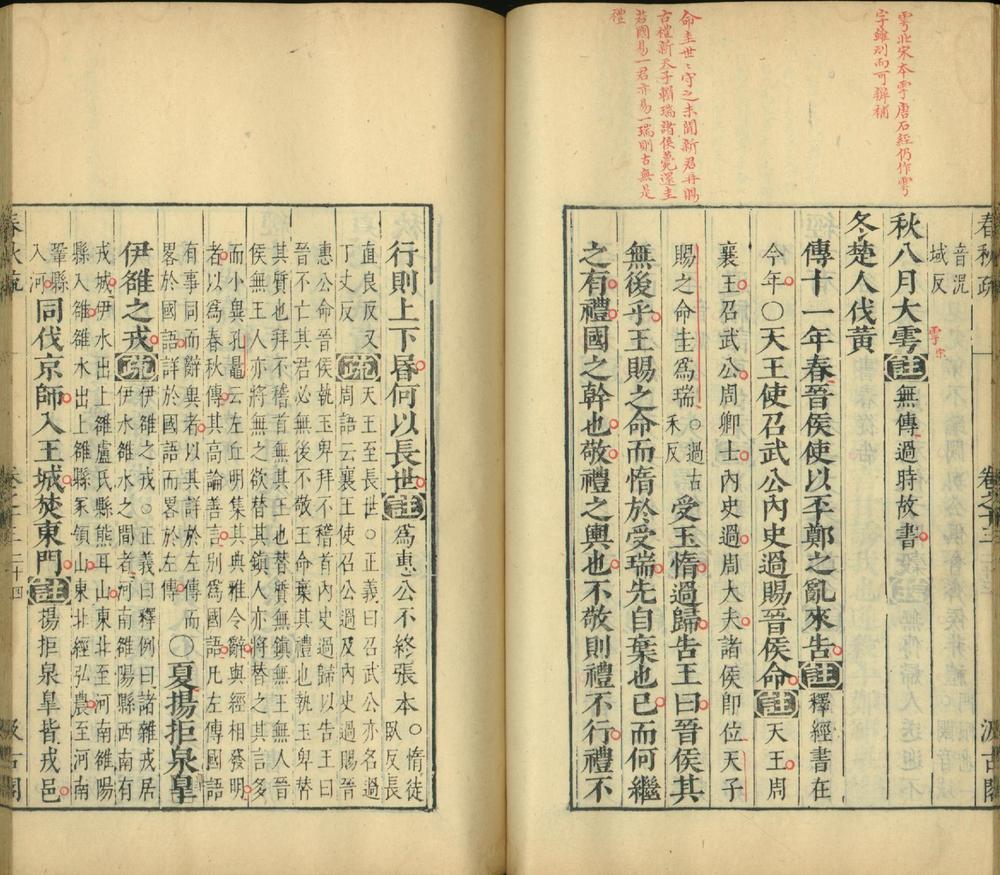 雩北宋本雩唐石經仍作雩
字雖刓而可辨補
命圭世〻守之未聞新君再賜
古禮新天子輯瑞諸侯薨還圭
若國易一君亦易一瑞則古無是
禮
春秋疏
卷之十三
汲古閣
音況
域反
秋八月大雩註無傳過時故書
雩宋
冬楚人伐黃
傳十一年春晉侯使以㔻鄭之亂來告註釋經書在
今年○天王使召武公內史過賜晉侯命註天王周
襄王召武公周卿士內史過周大夫諸侯卽位天子
賜之命圭爲瑞○過古
禾反
受玉惰過歸告王曰晉侯其
無後乎王賜之命而惰於受瑞先自棄也已而何繼
之有禮國之幹也敬禮之輿也不敬則禮不行禮不
行則上下昬何以長世註爲惠公不終張本○惰徒
臥反長
直良反又
丁丈反
疏天王至長世○正義曰召武公亦名過
周語云襄王使召公過及內史過賜晉
惠公命晉侯執玉卑拜不稽首內史過歸以告王曰
晉不亡其君必無後不敬王命棄其禮也執玉卑替
其質也拜不稽首無其王也替質無鎮無王無人晉
侯無王人亦將無之欲替其鎮人亦將替之其言多
而小異孔鼂云左丘明集其典雅令辭與經相發明
者以爲春秋傳其高論善言別爲國語凡左傳國語
有事同而辭異者以其詳於左傳而
畧於國語詳於國語而畧於左傳
○夏揚拒泉臯
伊雒之戎疏伊雒之戎○正義曰釋例曰諸雜戎居
伊水雒水之間者河南雒陽縣西南有
戎城伊水出上雒盧氏縣熊耳山東北至河南雒陽
縣入雒雒水出上雒縣冢領山東北經弘農至河南
鞏縣
入河
同伐京師入王城焚東門註揚拒泉臯皆戎邑
春秋疏
卷之十三
二十四
汲古閣